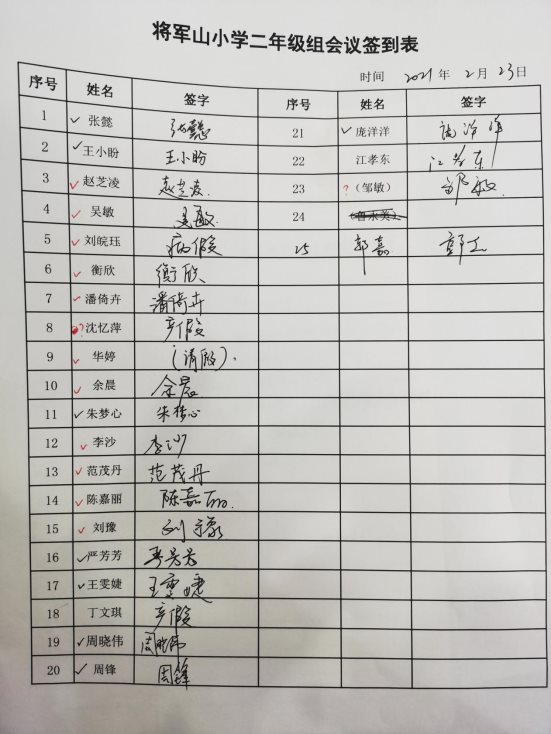 将军山小学二年级组会议签到表
时间 2021年2月23日
序号 姓名 签字 序号 姓名 签字
1 张懿 张懿 21 庞洋洋 庞洋洋
2 王小盼 王小盼 22 江孝东 江孝东
3 赵芝凌 赵芝凌 23 ?（邹敏） 邹敏
4 吴敏 吴敏 24
5 刘皖珏 病假 25 郭嘉 郭嘉
6 衡欣 衡欣
7 潘倚卉 潘倚卉
8 ?沈忆萍 产假
9 华婷 （请假）.
10 余晨 余晨
11 朱梦心 朱梦心
12 李沙 李沙
13 范茂丹 范茂丹
14 陈嘉丽 陈嘉丽
15 刘豫 刘豫
16 严芳芳 严芳芳
17 王雯婕 王雯婕
18 丁文琪 产假
19 周晓伟 周晓伟
20 周锋 周锋